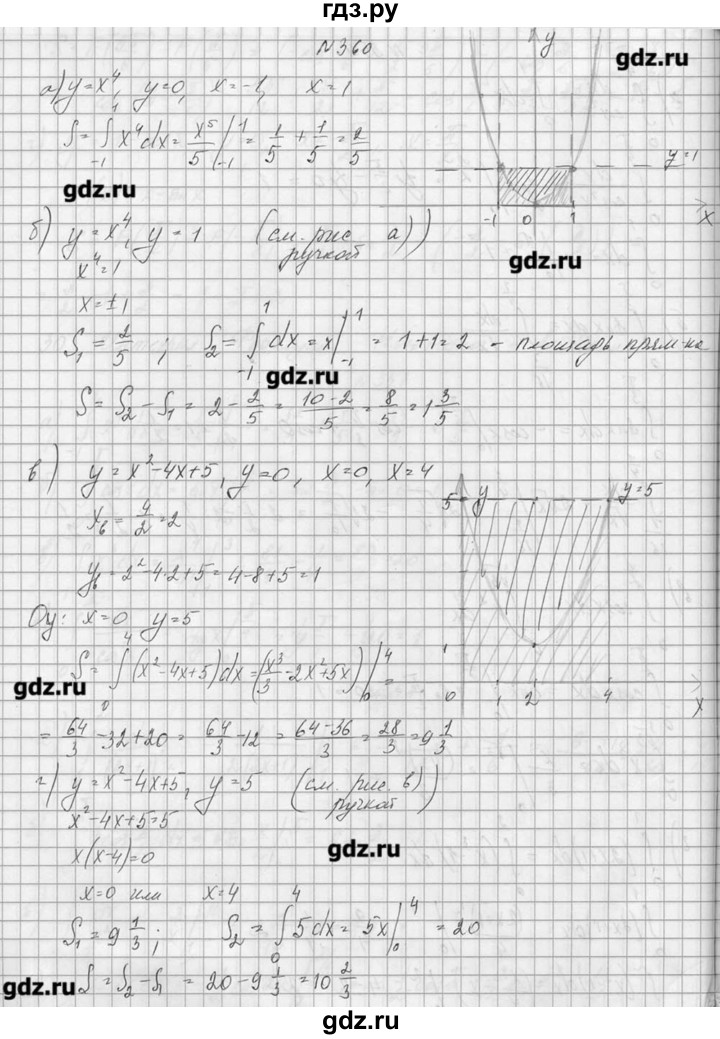 гдз.ру
N 360
gdz.ru
а) y=x⁴, y=0, x=-1, x=1
S = ∫₋₁¹ x⁴dx = x⁵/5 |₋₁¹ = 1/5 + 1/5 = 2/5
y
y=1
-1 0 1 x
gdz.ru
б) y=x⁴, y=1 (см. рис а))
ручкой
x⁴=1
gdz.ru
x=±1
S₁ = 2/5 ; S₂ = ∫₋₁¹ dx = x |₋₁¹ = 1+1=2 - площадь прям-ка
gdz.ru
S = S₂ - S₁ = 2 - 2/5 = (10-2)/5 = 8/5 = 1 3/5
в) y=x²-4x+5, y=0, x=0, x=4
xв = 4/2 = 2
yв = 2²-4·2+5 = 4-8+5 = 1
Oy: x=0 y=5
5 y y=5
1
0 1 2 4 x
S = ∫₀⁴ (x²-4x+5)dx = (x³/3 - 2x² + 5x) |₀⁴ =
gdz.ru
= 64/3 - 32+20 = 64/3 - 12 = (64-36)/3 = 28/3 = 9 1/3
г) y=x²-4x+5, y=5 (см. рис. в))
ручкой
x²-4x+5=5
gdz.ru
x(x-4)=0
x=0 или x=4
S₁ = 9 1/3 ; S₂ = ∫₀⁴ 5dx = 5x |₀⁴ = 20
gdz.ru
S = S₂ - S₁ = 20 - 9 1/3 = 10 2/3
gdz.ru